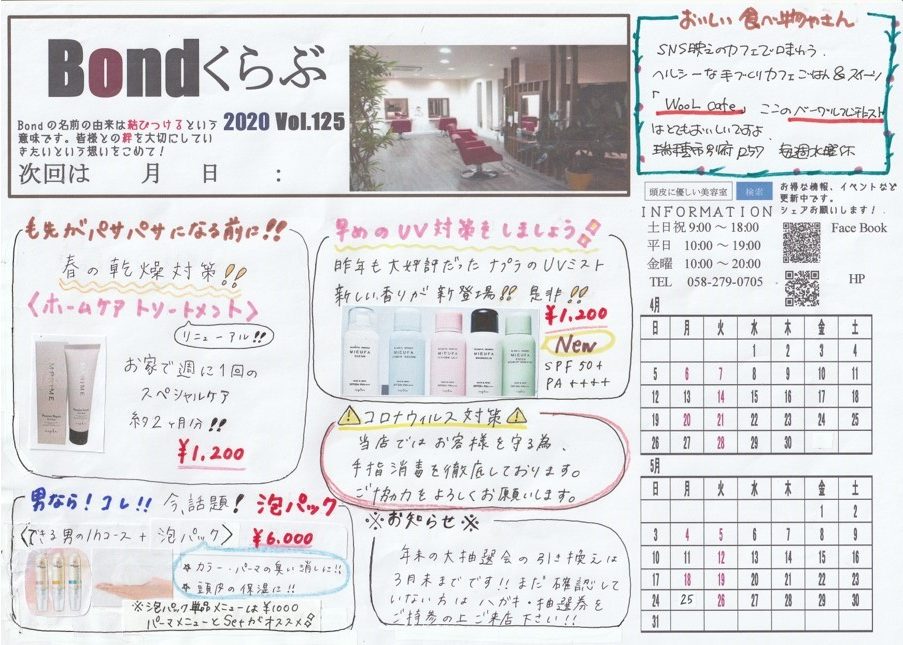 Bondくらぶ
2020 Vol.125
Bondの名前の由来は結びつけるという
意味です。皆様との絆を大切にしてい
きたいという想いをこめて!
次回は 月 日 :
おいしい 食べ物やさん
SNS映えのカフェで口まわう、
ヘルシーな手づくりカフェごはん&スイーツ
「Wool cafe」 ここの
はとてもおいしいですよ
瑞穂市別府1257 毎週水曜休
頭皮に優しい美容室 検索
お得な情報、イベントなど
更新中です。
シェアお願いします!
INFORMATION
土日祝 9:00~18:00
平日 10:00~19:00
金曜 10:00~20:00
TEL 058-279-0705
Face Book
HP
も先がパサパサになる前に!!
春の乾燥対策!!
<ホームケアトリートメント>
リニューアル!!
お家で週に1回の
スペシャルケア
約2ヶ月分!!
¥1,200
早めのUV対策をしましょう
昨年も大好評だったナプラのUVミスト
新しい香りが新登場!! 是非!!
¥1,200
New
SPF50+
PA++++
MIEUFA MIEUFA MIEUFA MIEUFA MIEUFA
コロナウィルス対策
当店ではお客様を守る為、
手指消毒を徹底しております。
ご協力をよろしくお願いします。
男なら!コレ!! 今話題! 泡パック
<できる男の1hコース + 泡パック> ¥6,000
★カラー・パーマの臭い消しに!!
★頭皮の保湿に!!
※泡パック単品メニューは¥1000
パーマメニューとSetがオススメ
※お知らせ※
年末の大抽選会の引き換えは
3月末までです!!まだ確認して
いない方は ハガキ・抽選券を
ご持参の上ご来店下さい!!
4月
日 月 火 水 木 金 土
1 2 3 4
5 6 7 8 9 10 11
12 13 14 15 16 17 18
19 20 21 22 23 24 25
26 27 28 29 30
5月
日 月 火 水 木 金 土
1 2
3 4 5 6 7 8 9
10 11 12 13 14 15 16
17 18 19 20 21 22 23
24 25 26 27 28 29 30
31